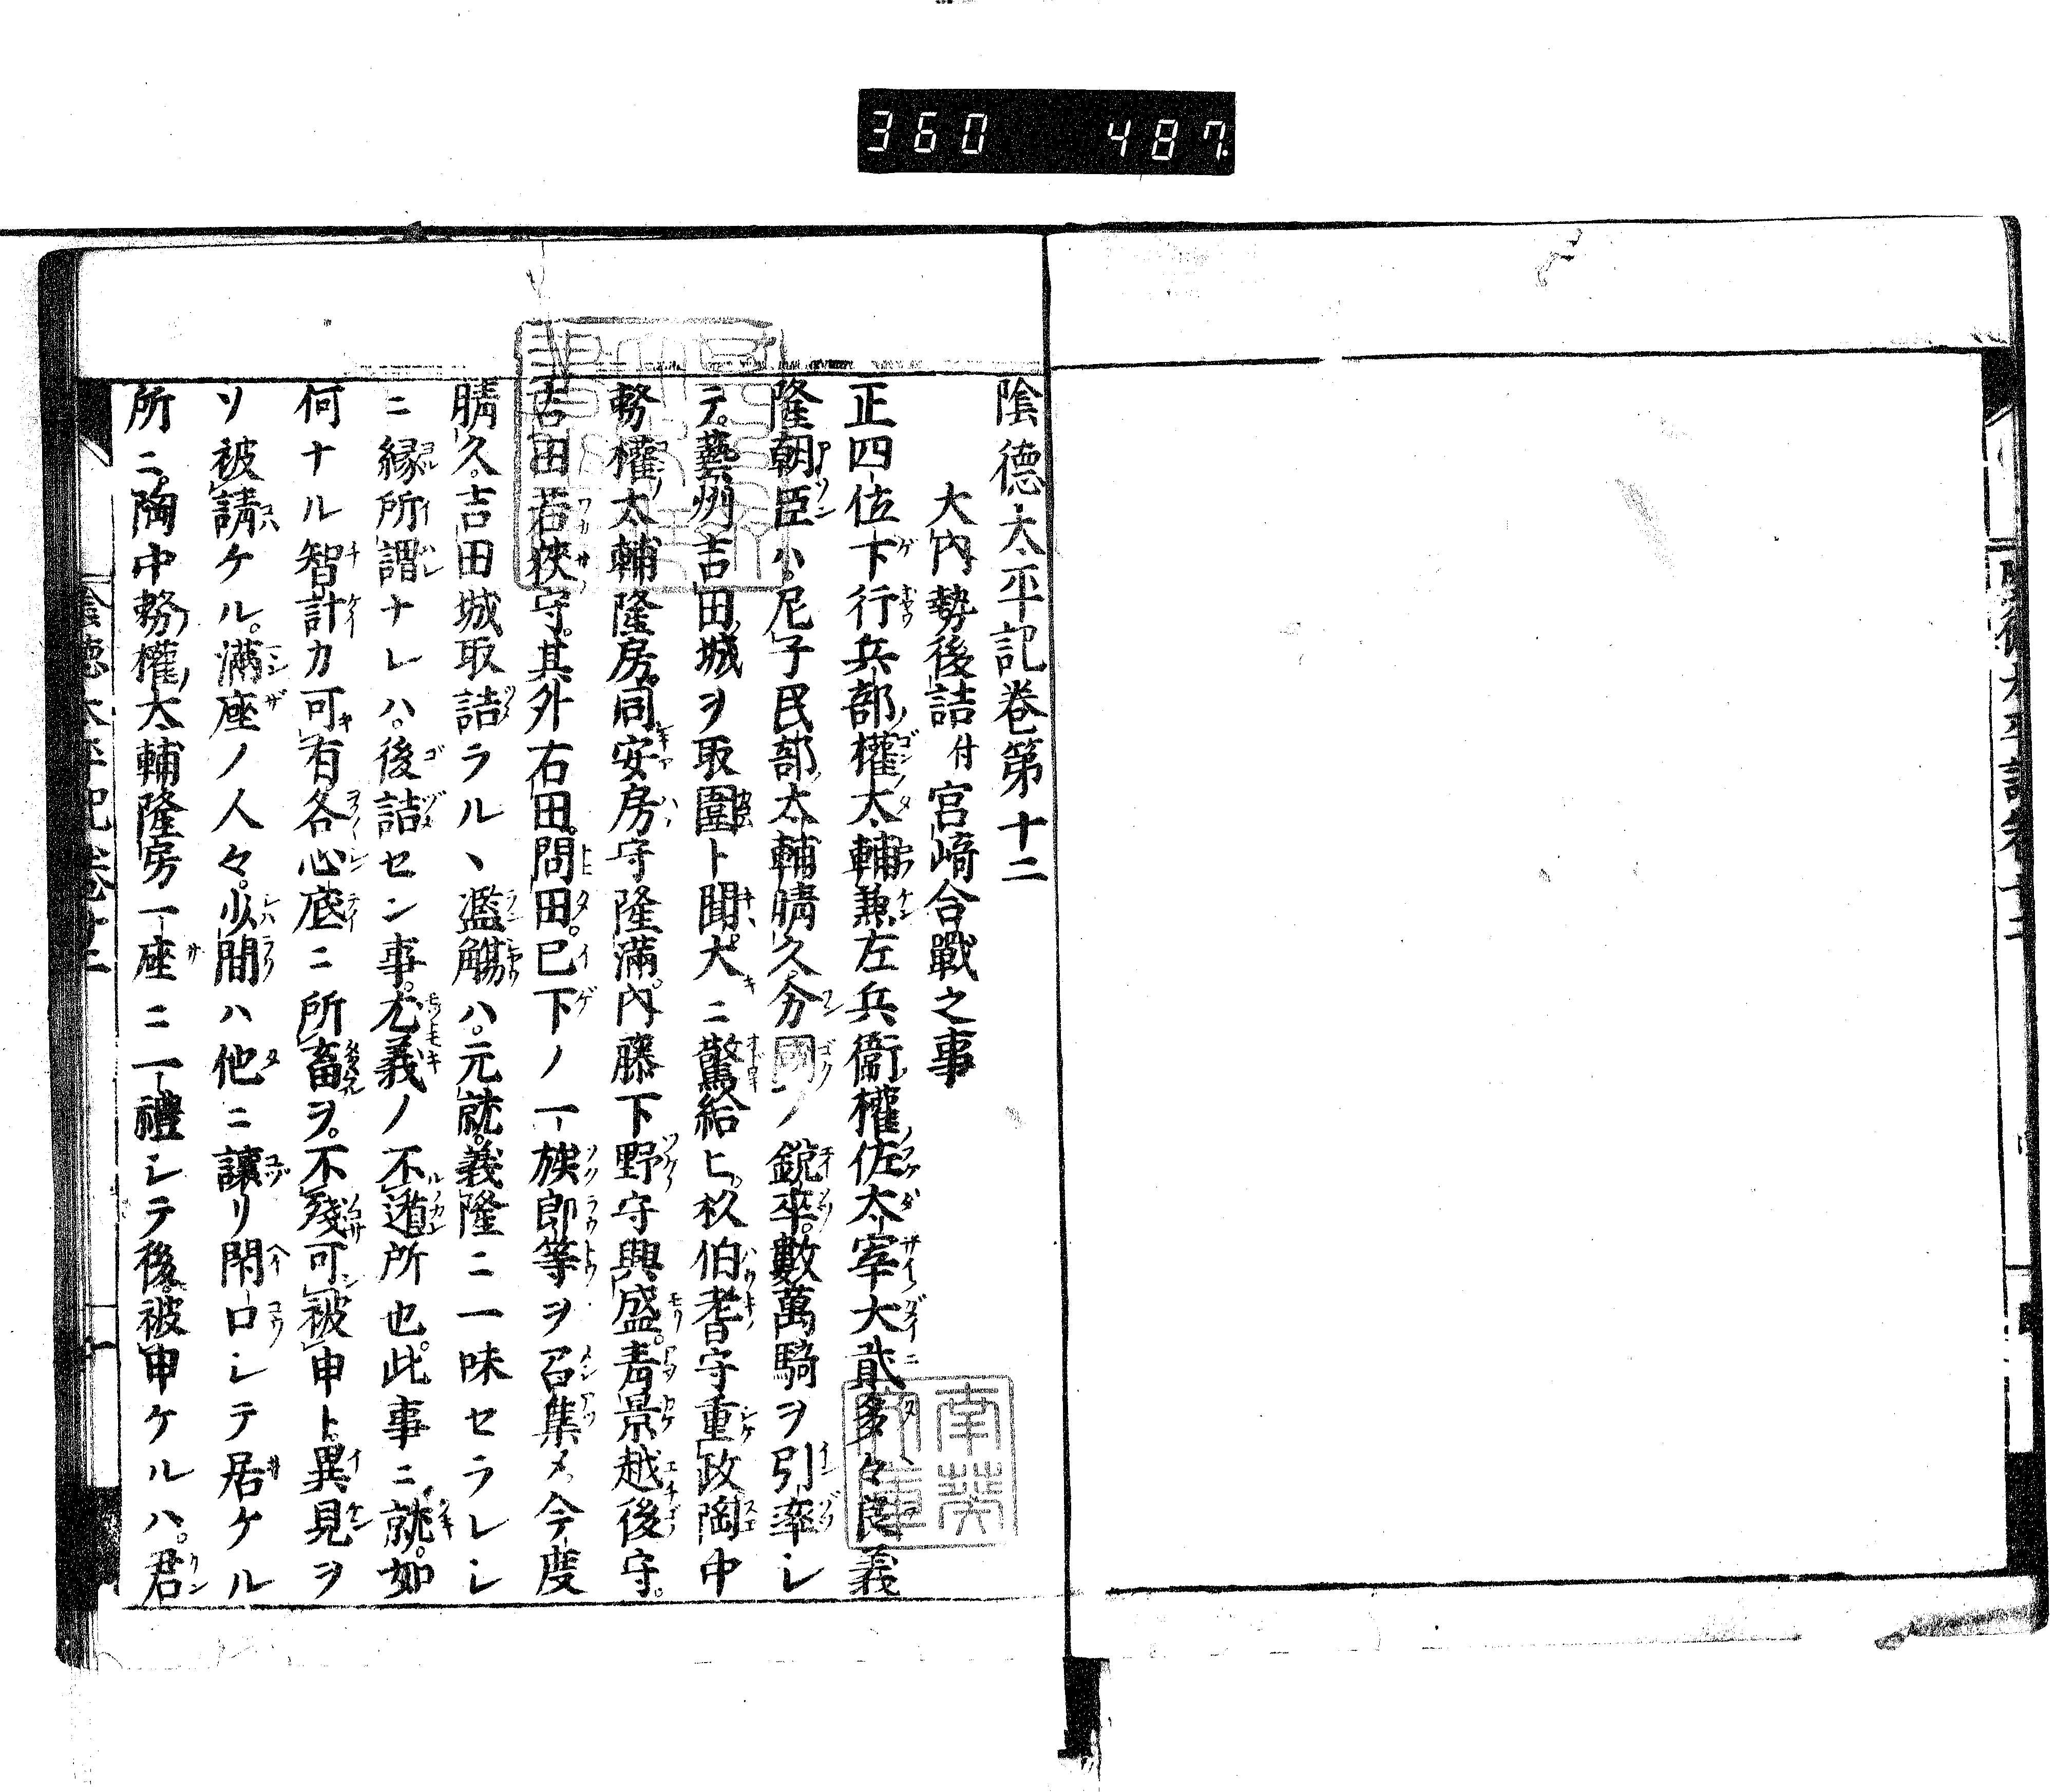 360 487
陰德太平記卷第十二
大內勢後詰付宮﨑合戰之事
正四位下行兵部權太輔兼左兵衞權佐太宰大貳多々良義
隆朝臣ハ。尼子民部太輔晴久分國ノ銳卒。數萬騎ヲ引率シ
テ。藝州吉田城ヲ取圍ト聞。大ニ驚給ヒ。杉伯耆守重政陶中
務權太輔隆房。同安房守隆滿。內藤下野守興盛。靑景越後守。
吉田若狹守。其外右田。問田。已下ノ一族郎等ヲ召集メ。今度
晴久。吉田城取詰ラル丶濫觴ハ。元就。義隆ニ一味セラレシ
ニ緣所謂ナレハ。後詰セン事。尤義ノ不遁所也。此事ニ就。如
何ナル智計カ可有各心底ニ所畜ヲ。不殘可被申ト異見ヲ
ソ被請ケル。滿座ノ人々。少間ハ他ニ讓リ閉口シテ居ケル
所ニ。陶中務權太輔隆房一座ニ一禮シテ後。被申ケルハ。君
陰德太平記卷十二
南葵文庫